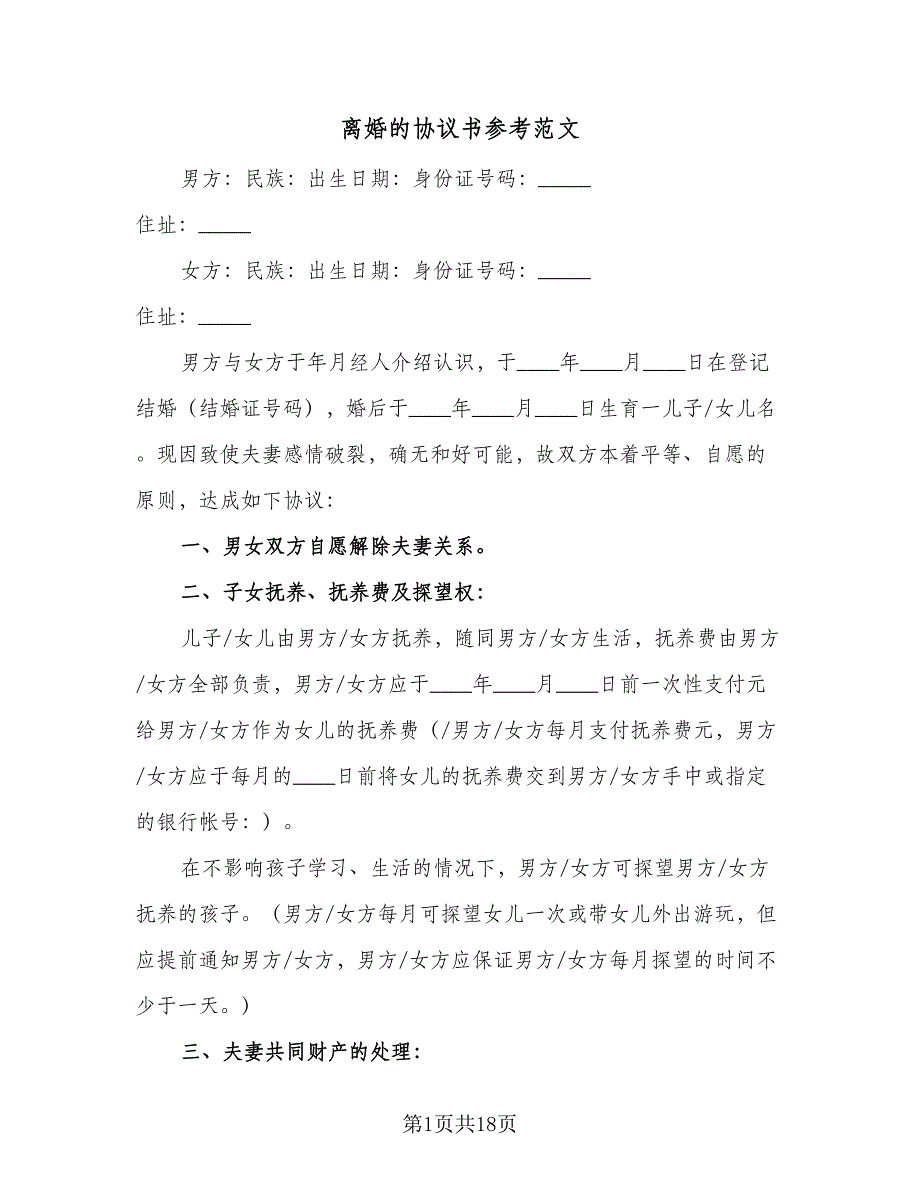 离婚的协议书参考范文
男方：民族：出生日期：身份证号码：_____
住址：_____
女方：民族：出生日期：身份证号码：_____
住址：_____
男方与女方于年月经人介绍认识，于____年____月____日在登记
结婚（结婚证号码），婚后于____年____月____日生育一儿子/女儿名
。现因致使夫妻感情破裂，确无和好可能，故双方本着平等、自愿的
原则，达成如下协议：
一、男女双方自愿解除夫妻关系。
二、子女抚养、抚养费及探望权：
儿子/女儿由男方/女方抚养，随同男方/女方生活，抚养费由男方
/女方全部负责，男方/女方应于____年____月____日前一次性支付元
给男方/女方作为女儿的抚养费（/男方/女方每月支付抚养费元，男方
/女方应于每月的____日前将女儿的抚养费交到男方/女方手中或指定
的银行帐号：）。
在不影响孩子学习、生活的情况下，男方/女方可探望男方/女方
抚养的孩子。（男方/女方每月可探望女儿一次或带女儿外出游玩，但
应提前通知男方/女方，男方/女方应保证男方/女方每月探望的时间不
少于一天。）
三、夫妻共同财产的处理：
第1页共18页